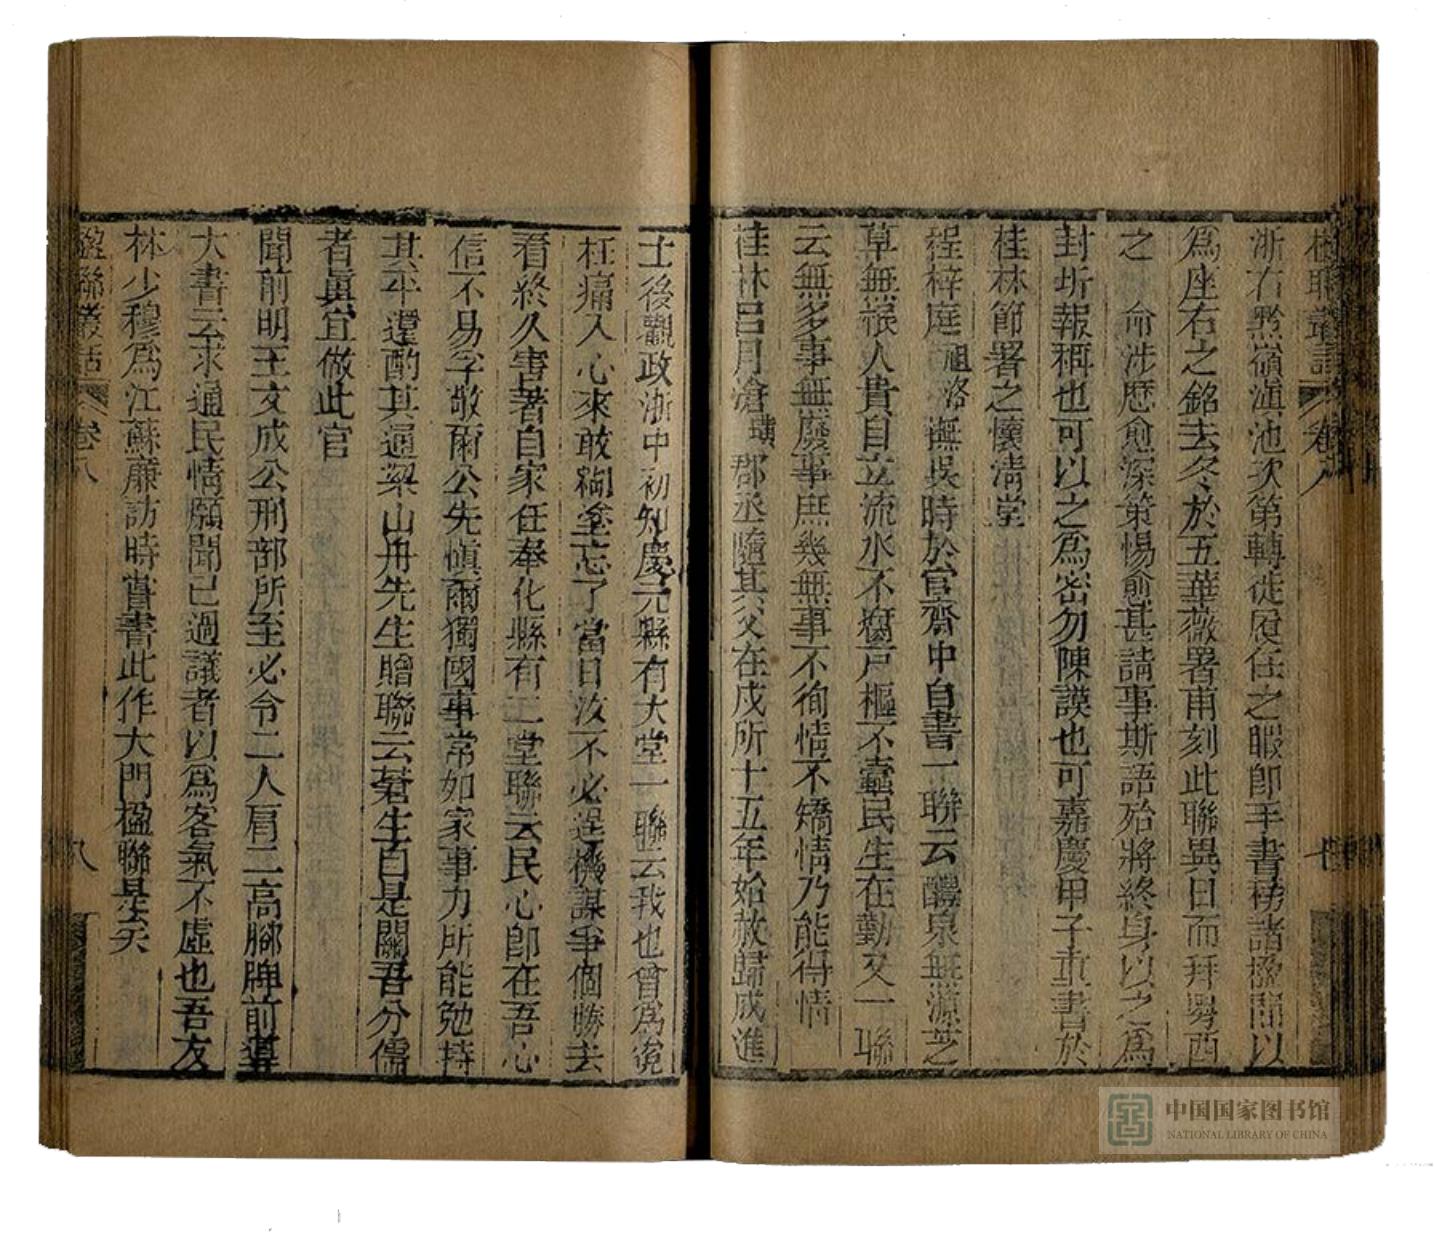 楹聯叢話 卷八 七
浙右黔嶺滇池次第轉徙履任之暇卽手書榜諸楹間以
爲座右之銘去冬於五華薇署甫刻此聯異日而拜粵西
之 命涉歷愈深策惕愈甚請事斯語殆將終身以之爲
封圻報稱也可以之爲密勿陳謨也可嘉慶甲子重書於
桂林節署之懷淸堂
程梓庭祖洛撫吳時於官齋中自書一聯云醴泉無源芝
草無根人貴自立流水不腐戸樞不蠹民生在勤又一聯
云無多事無廢事庶幾無事不徇情不矯情乃能得情
桂林呂月滄璜郡丞隨其父在戍所十五年始赦歸成進
士後觀政浙中初知慶元縣有大堂一聯云我也曾爲寃
枉痛入心來敢糊塗忘了當日汝不必逞機謀爭個勝去
看終久害著自家任奉化縣有二堂聯云民心卽在吾心
信不易孚敬爾公先愼爾獨國事常如家事力所能勉持
其平還酌其通梁山舟先生贈聯云蒼生自是關吾分儒
者眞宜做此官
聞前明王文成公刑部所至必令二人肩二高腳牌前導
大書云求通民情願聞已過議者以爲客氣不虛也吾友
林少穆爲江蘇廉訪時嘗書此作大門楹聯是矣
楹聯叢話 卷八 八
中国国家图书馆
NATIONAL LIBRARY OF CHINA